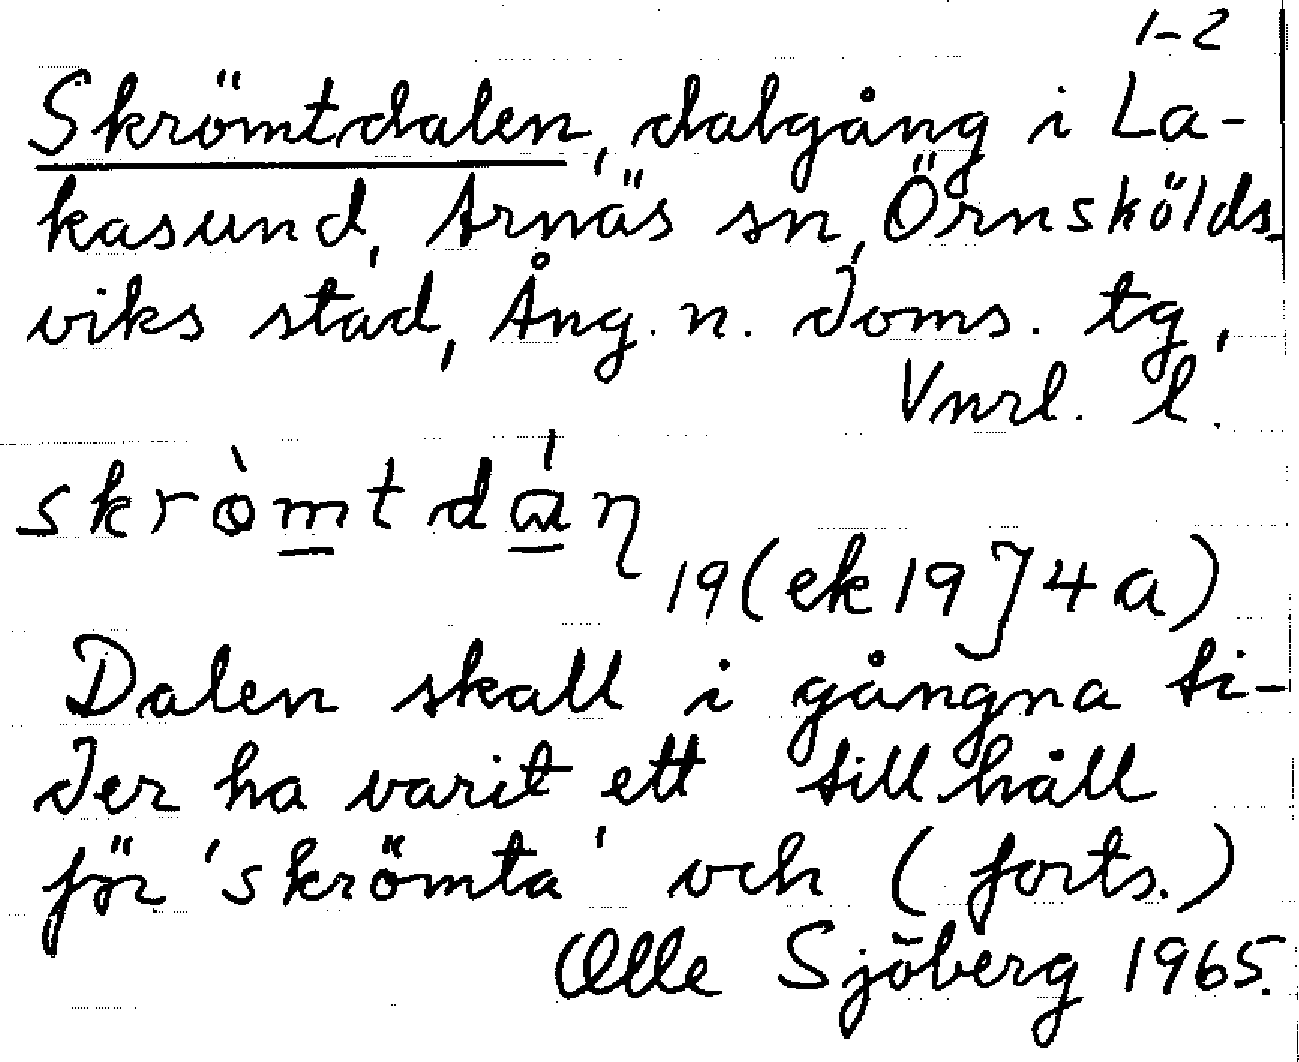 1-2
Skrömtdalen, dalgång i La-
kasund, Arnäs sn, Örnskölds-
viks stad, Ång. n. doms. tg,
Vnrl. l.
19 (ek 1974a)
Dalen skall i gångna ti-
der ha varit ett tillhåll
för 'skrömta' och (forts.)
Olle Sjöberg 1965.